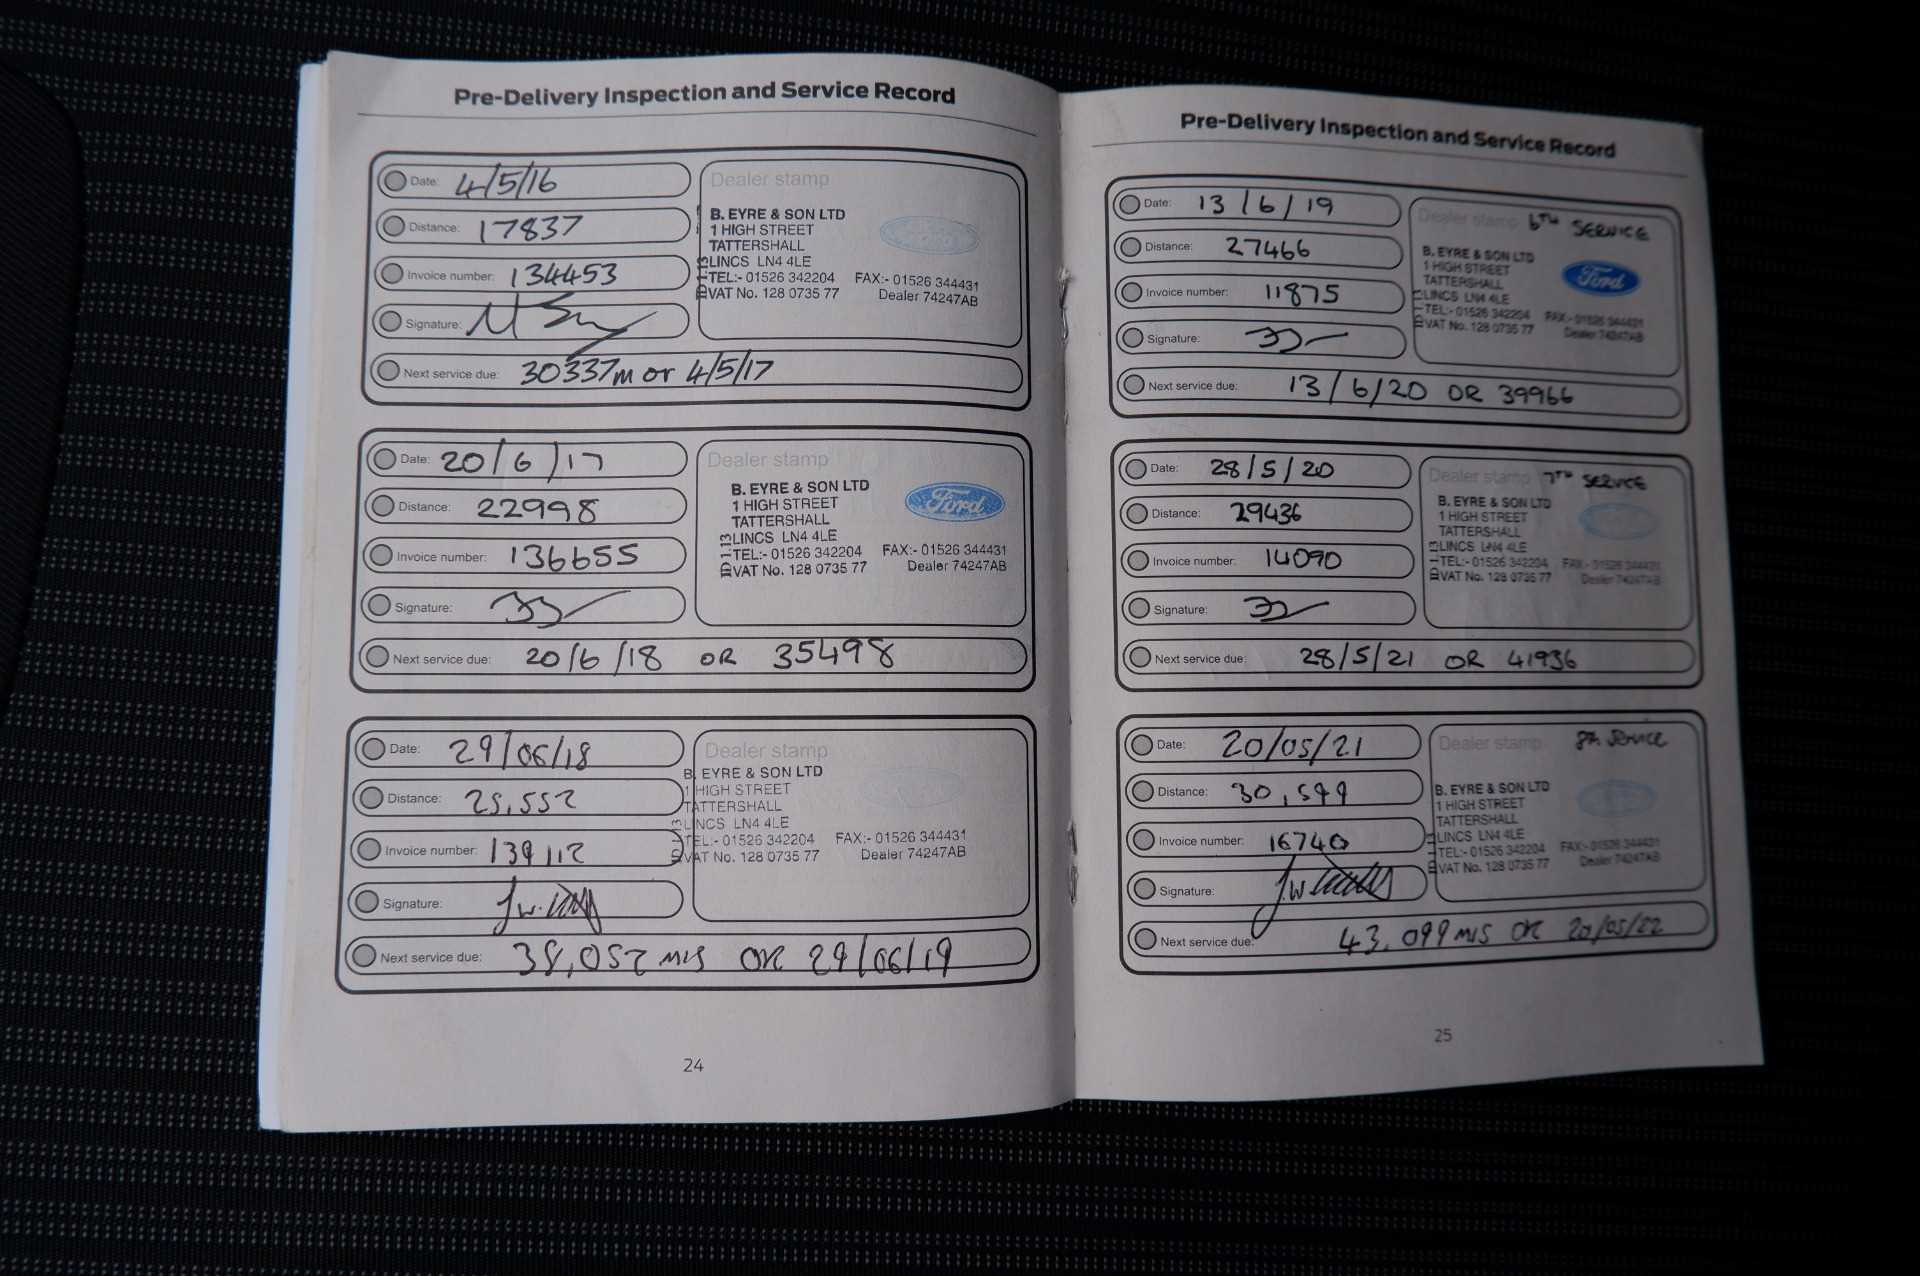 Pre-Delivery Inspection and Service Record
Date: 4/5/16
Distance: 17837
Invoice number: 134453
Signature:
Next service due: 30337m or 4/5/17
Dealer stamp
B. EYRE & SON LTD
1 HIGH STREET
TATTERSHALL
LINCS LN4 4LE
TEL:- 01526 342204 FAX:- 01526 344431
VAT No. 128 0735 77 Dealer 74247AB
Date: 20/6/17
Distance: 22998
Invoice number: 136655
Signature:
Next service due: 20/6/18 OR 35498
Dealer stamp
B. EYRE & SON LTD
Ford
1 HIGH STREET
TATTERSHALL
LINCS LN4 4LE
TEL:- 01526 342204 FAX:- 01526 344431
VAT No. 128 0735 77 Dealer 74247AB
Date: 29/06/18
Distance: 25,552
Invoice number: 139112
Signature:
Next service due: 38,052 MLS OR 29/06/19
Dealer stamp
B. EYRE & SON LTD
1 HIGH STREET
TATTERSHALL
LINCS LN4 4LE
TEL:- 01526 342204 FAX:- 01526 344431
VAT No. 128 0735 77 Dealer 74247AB
24
Pre-Delivery Inspection and Service Record
Date: 13/6/19
Distance: 27466
Invoice number: 11875
Signature:
Next service due: 13/6/20 OR 39966
Dealer stamp 6TH SERVICE
B. EYRE & SON LTD
Ford
1 HIGH STREET
TATTERSHALL
LINCS LN4 4LE
TEL:- 01526 342204 FAX:- 01526 344431
VAT No. 128 0735 77 Dealer 74247AB
Date: 28/5/20
Distance: 29436
Invoice number: 14090
Signature:
Next service due: 28/5/21 OR 41936
Dealer stamp 7TH SERVICE
B. EYRE & SON LTD
1 HIGH STREET
TATTERSHALL
LINCS LN4 4LE
TEL:- 01526 342204 FAX:- 01526 344431
VAT No. 128 0735 77 Dealer 74247AB
Date: 20/05/21
Distance: 30,599
Invoice number: 16740
Signature:
Next service due: 43,099 MLS OR 20/05/22
Dealer stamp 8th Service
B. EYRE & SON LTD
1 HIGH STREET
TATTERSHALL
LINCS LN4 4LE
TEL:- 01526 342204 FAX:- 01526 344431
VAT No. 128 0735 77 Dealer 74247AB
25